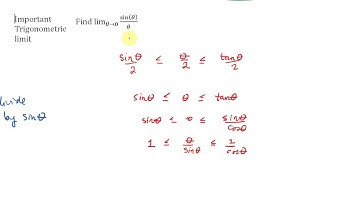 Important
Trigonometric
limit
Find lim_{θ→0} sin(θ)/θ
sinθ/2 ≤ θ/2 ≤ tanθ/2
sinθ ≤ θ ≤ tanθ
by sinθ
sinθ ≤ θ ≤ sinθ/cosθ
1 ≤ θ/sinθ ≤ 1/cosθ